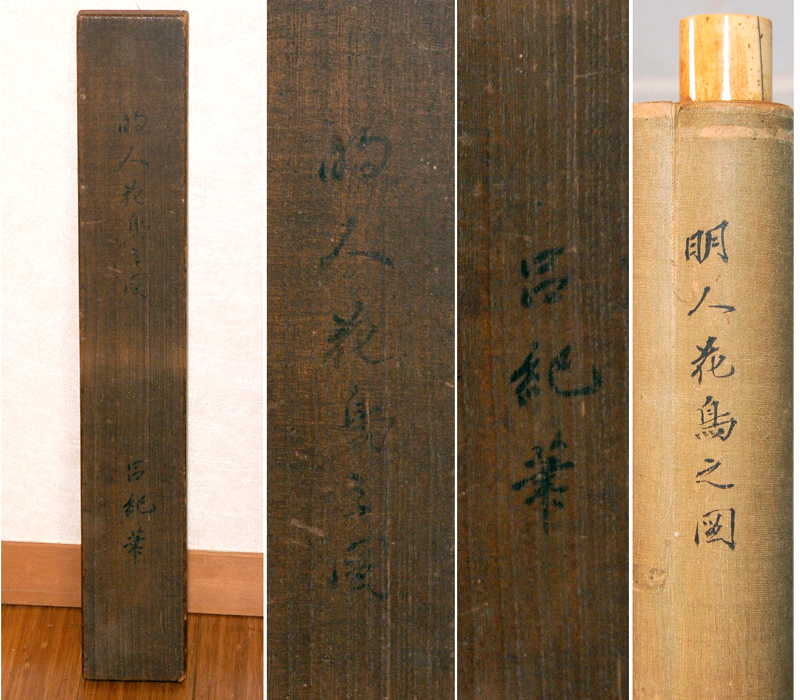 明人花鳥之図
呂紀筆
明人花鳥之図
呂紀筆
明人花鳥之図